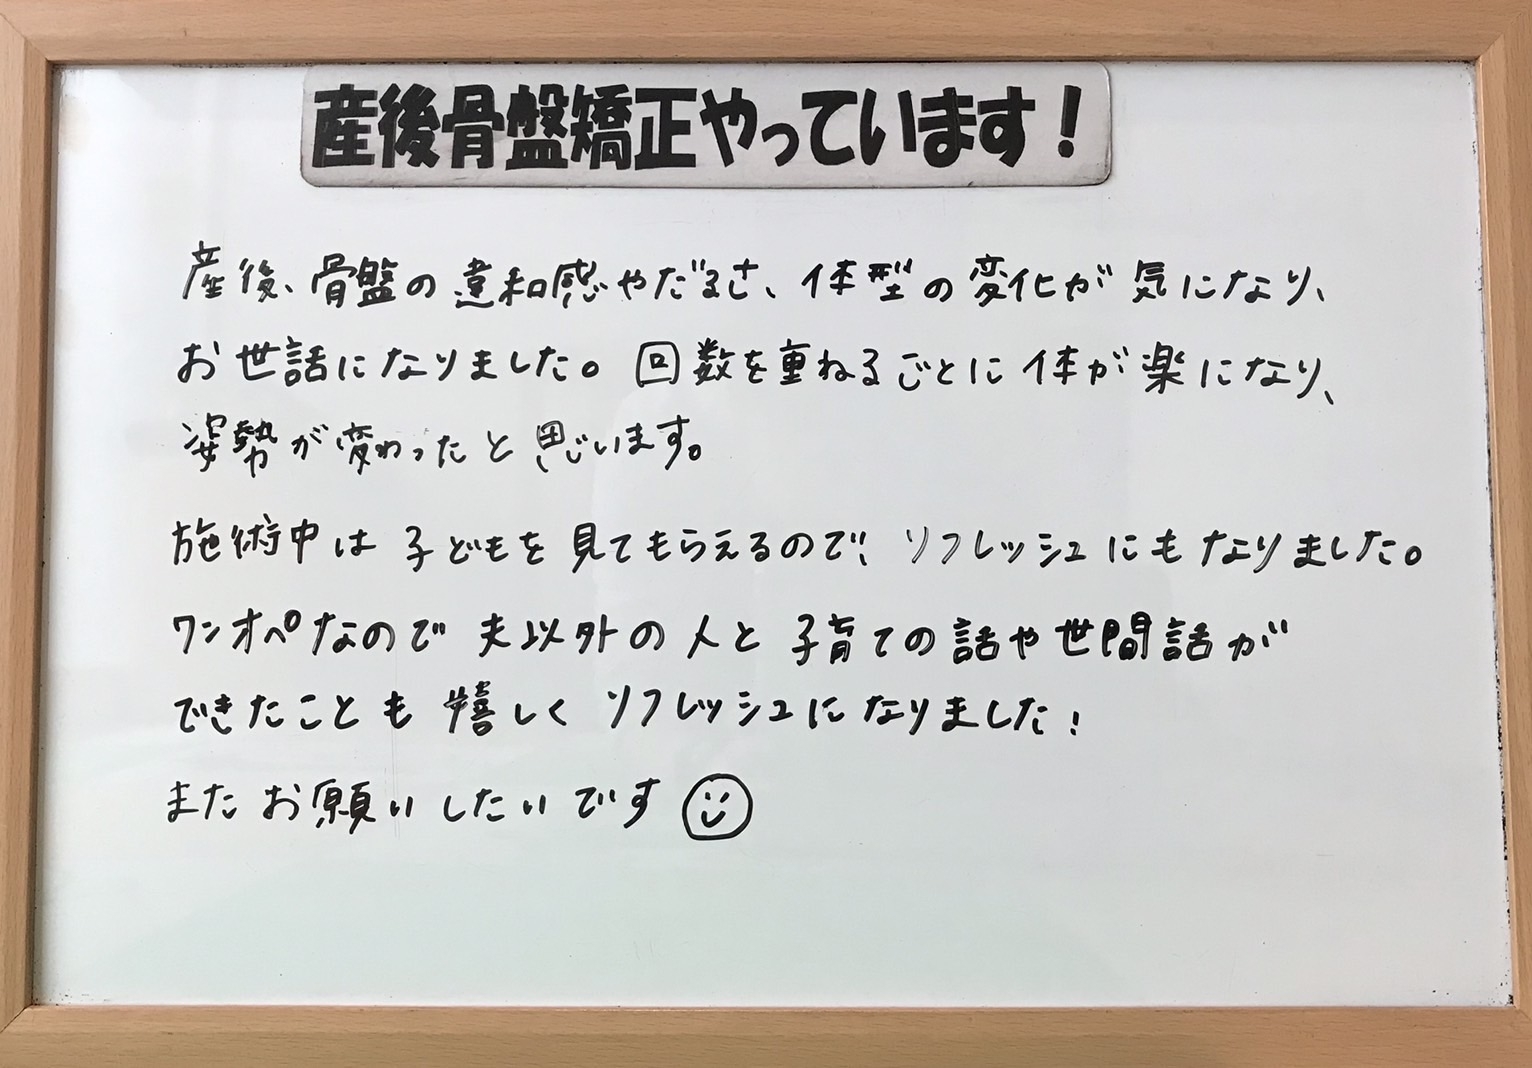 産後骨盤矯正やっています！
産後、骨盤の違和感やだるさ、体型の変化が気になり、
お世話になりました。回数を重ねるごとに体が楽になり、
姿勢が変わったと思います。
施術中は子どもを見てもらえるので、リフレッシュにもなりました。
ワンオペなので夫以外の人と子育ての話や世間話が
できたことも嬉しくリフレッシュになりました！
またお願いしたいです